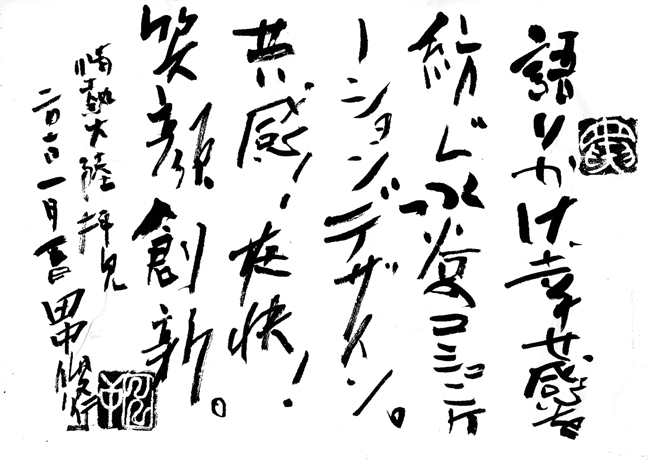 語りかけ、幸せ感を
紡ぐ 水谷 コミュニケ
ーションデザイン。
共感！爽快！
笑顔創新。
情熱大陸 拝見
二〇一〇 一月 吉日